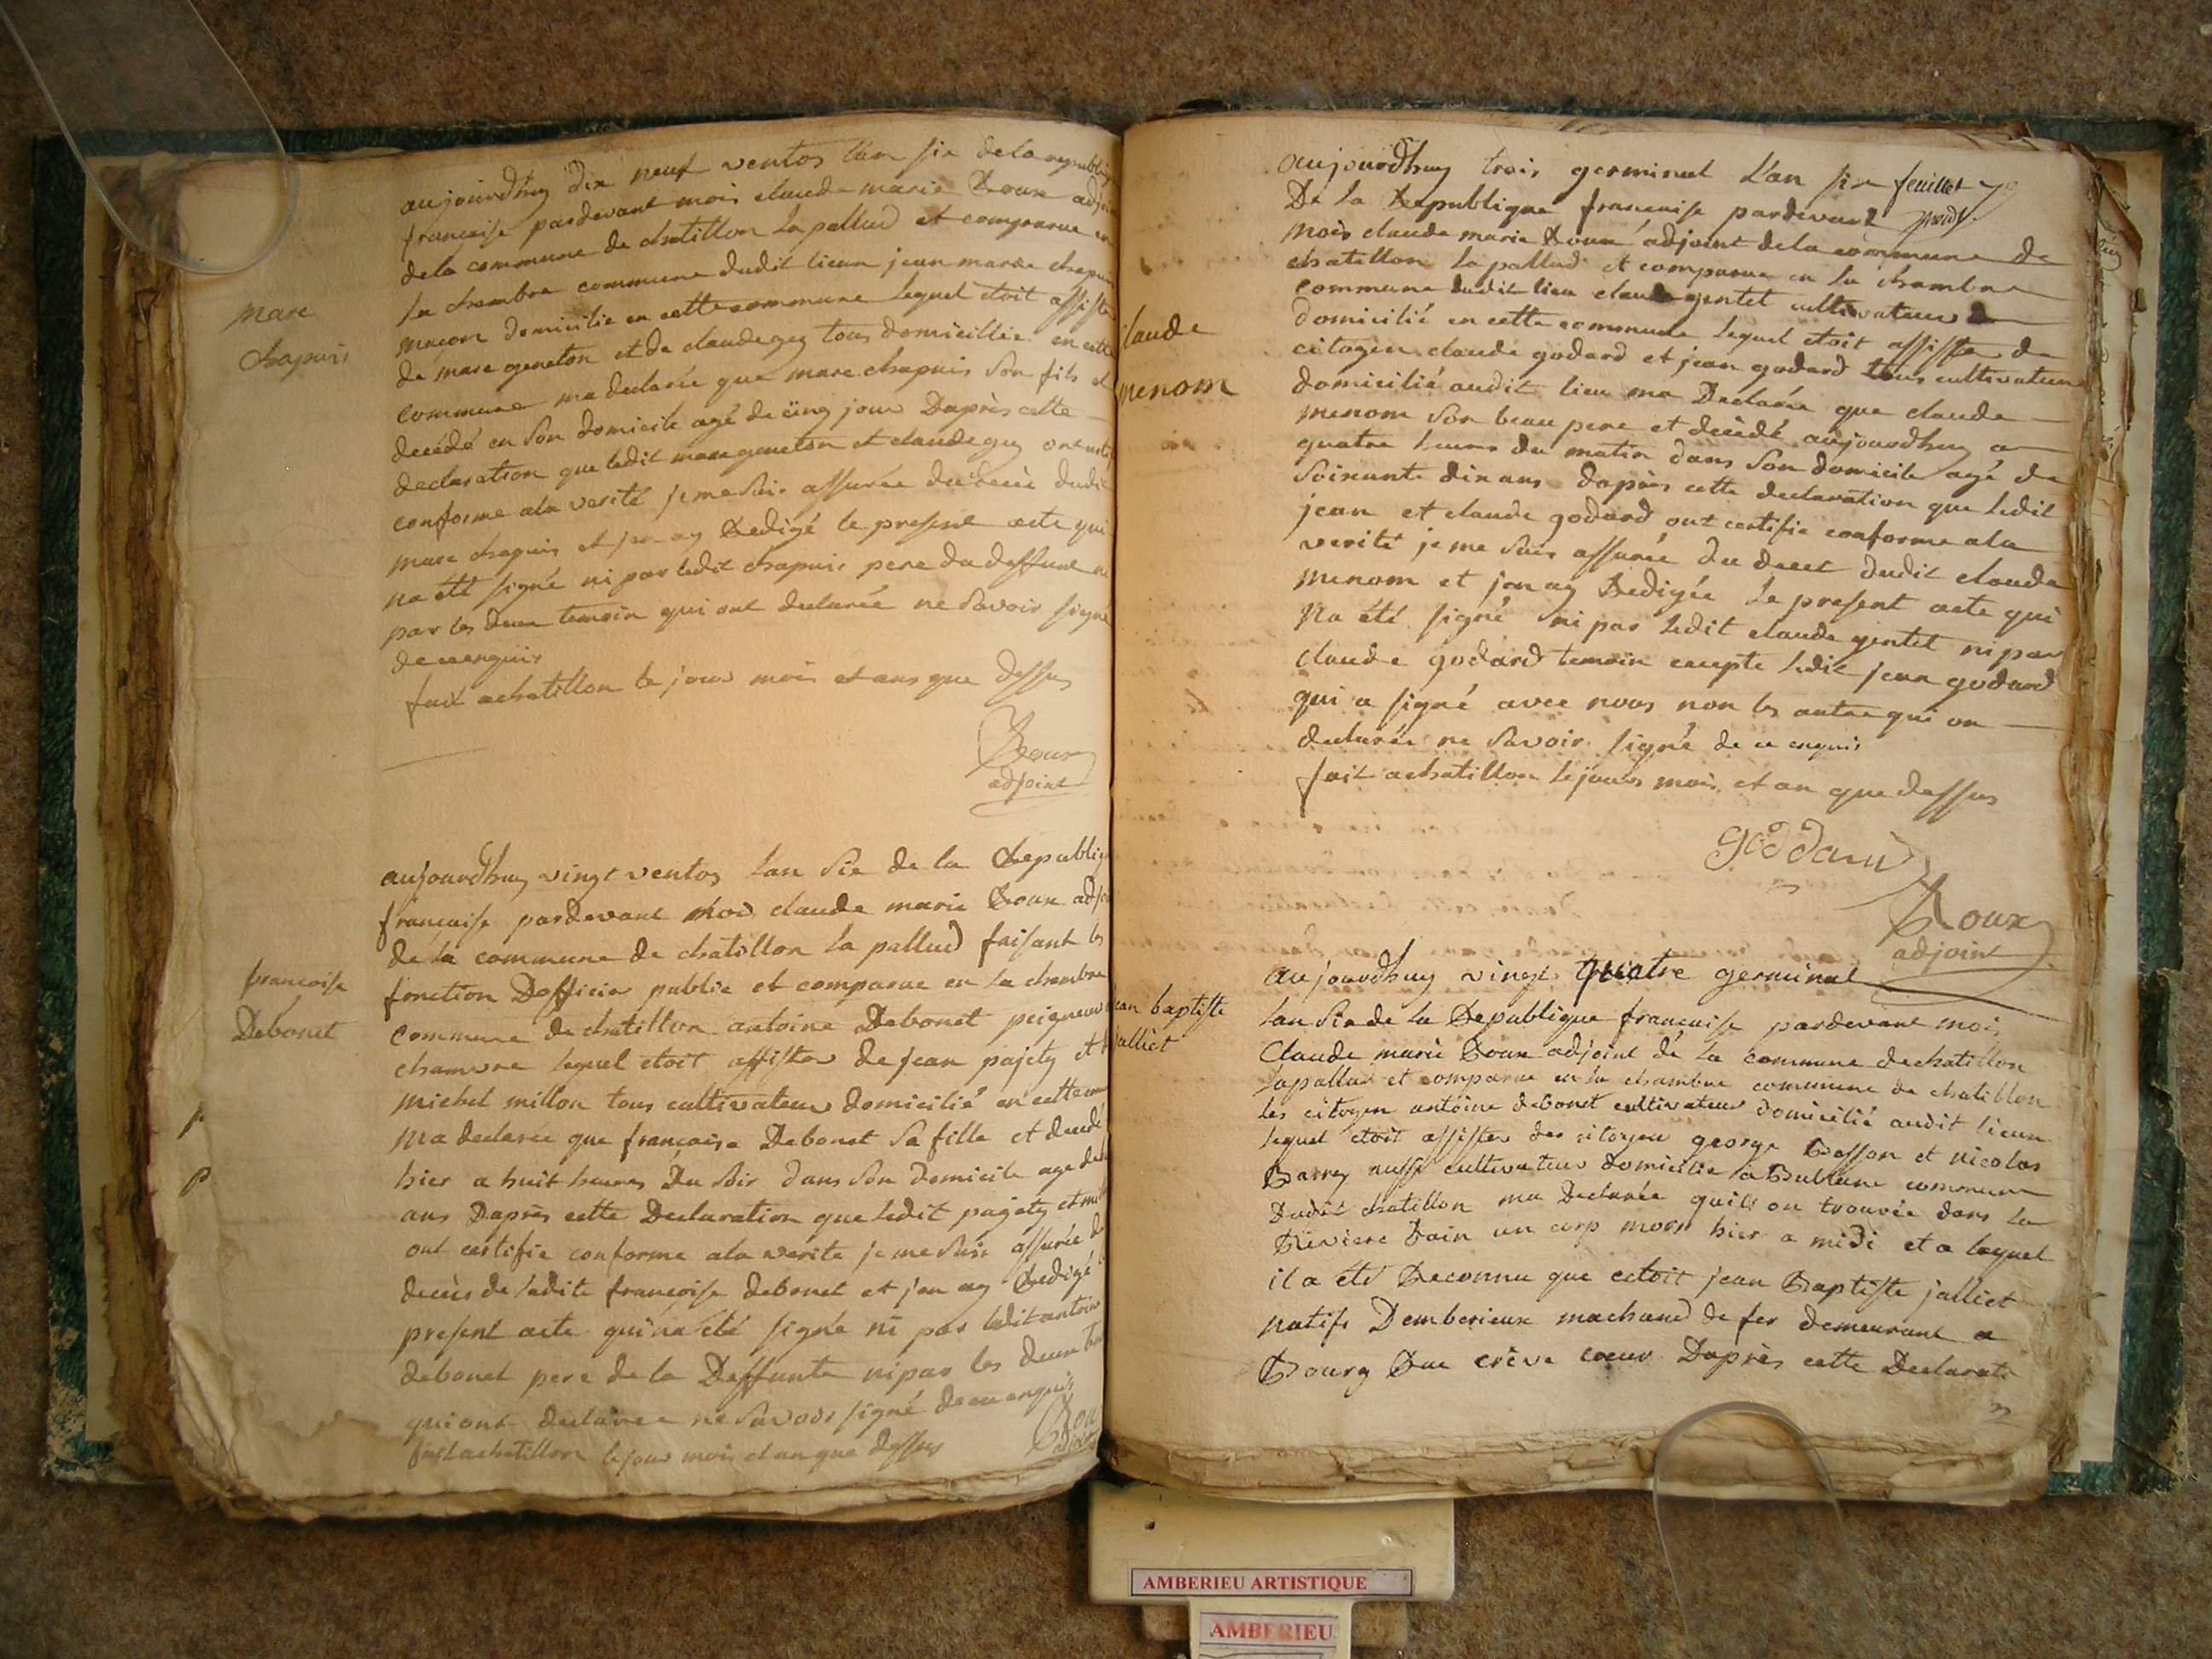 aujourdhuy dix neuf ventos lan six de la republiq
francaise pardevant mois claude marie Roux adjoi
de la commune de chatillon la pallud et comparue en
la chambre commune dudit lieux jean marie chapuis
macon domicilie en cette commune lequel etoit assiste
de marc geneton et de claude gey tous domicillie en cette
commune ma declarée que marc chapuis son fils et
decédé en son domicile agé de cinq jour Daprès cette
declaration que ledit marc geneton et claude gey
conforme ala verité je me suis assurée du decès dudit
marc chapuis et jen ay Redigé le present acte qui
na été signé ni par ledit chapuis pere du deffunt ni
par les deux temoin qui ont declarée ne savoir signé
de ce enquis
fait achatillon le jour mois et ans que dessus
Roux
adjoint
marc
chapuis
aujourdhuy vingt ventos lan six de la Republiq
francaise pardevant moi claude marie Roux adjoi
de la commune de chatillon la pallud faisant les
fonction Dofficier public et comparue en la chambre
commune de chatillon antoine Debonet peigneur
chamvre lequel etoit assister de jean pajety et
michel millon tous cultivateur domicilié en cette com
ma declarée que francoise Debonet sa fille et decedé
hier a huit heures Du soir dans son domicile age de
ans Daprès cette Declaration que ledit pajety et mi
ont certifie conforme ala verite je me suis assurée du
decès de ladite francoise debonet et jen ay Redigé
present acte qui na été signé ni par ledit antoine
debonet pere de la Deffunte ni par les deux
qui ont declarée ne savoir signé de ce enquis
fait achatillon le jour mois et an que dessus
Rou
adjoint
francoise
Debonet
p
p
aujourdhuy trois germinal Lan six feuillet
De la Republique francaise pardevant
mois claude marie Roux adjoint de la commune de
chatillon la pallud et comparue en la chambre
commune dudit lieu claude gentet cultivateur
domicilié en cette commune lequel etoit assister de
citoyen claude godard et jean godard tous cultivateur
domicilié audit lieu ma Declarée que claude
menom son beau pere et decédé aujourdhuy a
quatre heures du matin dans son domicile agé de
soixante dix ans daprès cette declaration que ledit
jean et claude godard ont certifie conforme ala
verité je me suis assurée du decet dudit claude
menom et jen ay Redigée Le present acte qui
na été signé ni par ledit claude gentet ni par
claude godard temoin exepte ledit jean godard
qui a signé avec nous non les autre qui on
declarée ne savoir signé de ce enquis
fait achatillon le jours mois et an que dessus
goddard
Roux
adjoint
claude
menom
aujourdhuy vingt quatre germinal
lan six de la Republique francaise pardevant moi
Claude marie Roux adjoint de la commune de chatillon
lapallud et comparue en la chambre commune de chatillon
les citoyen antoine debonet cultivateur domicilié audit lieux
lequel etoit assister des citoyen george Besson et nicolas
Barrey aussi cultivateur domicilie a Bublane commune
Dudit chatillon ma Declarée quils on trouvée dans la
Riviere Dain un corp mors hier a midi et a laquel
il a été Reconnu que cetoit jean Baptiste jalliet
natife Demberieux machand de fer demeurant a
Bourg Rue crève coeur Daprès cette Declarati
jean baptiste
jalliet
AMBERIEU ARTISTIQUE
AMBERIEU